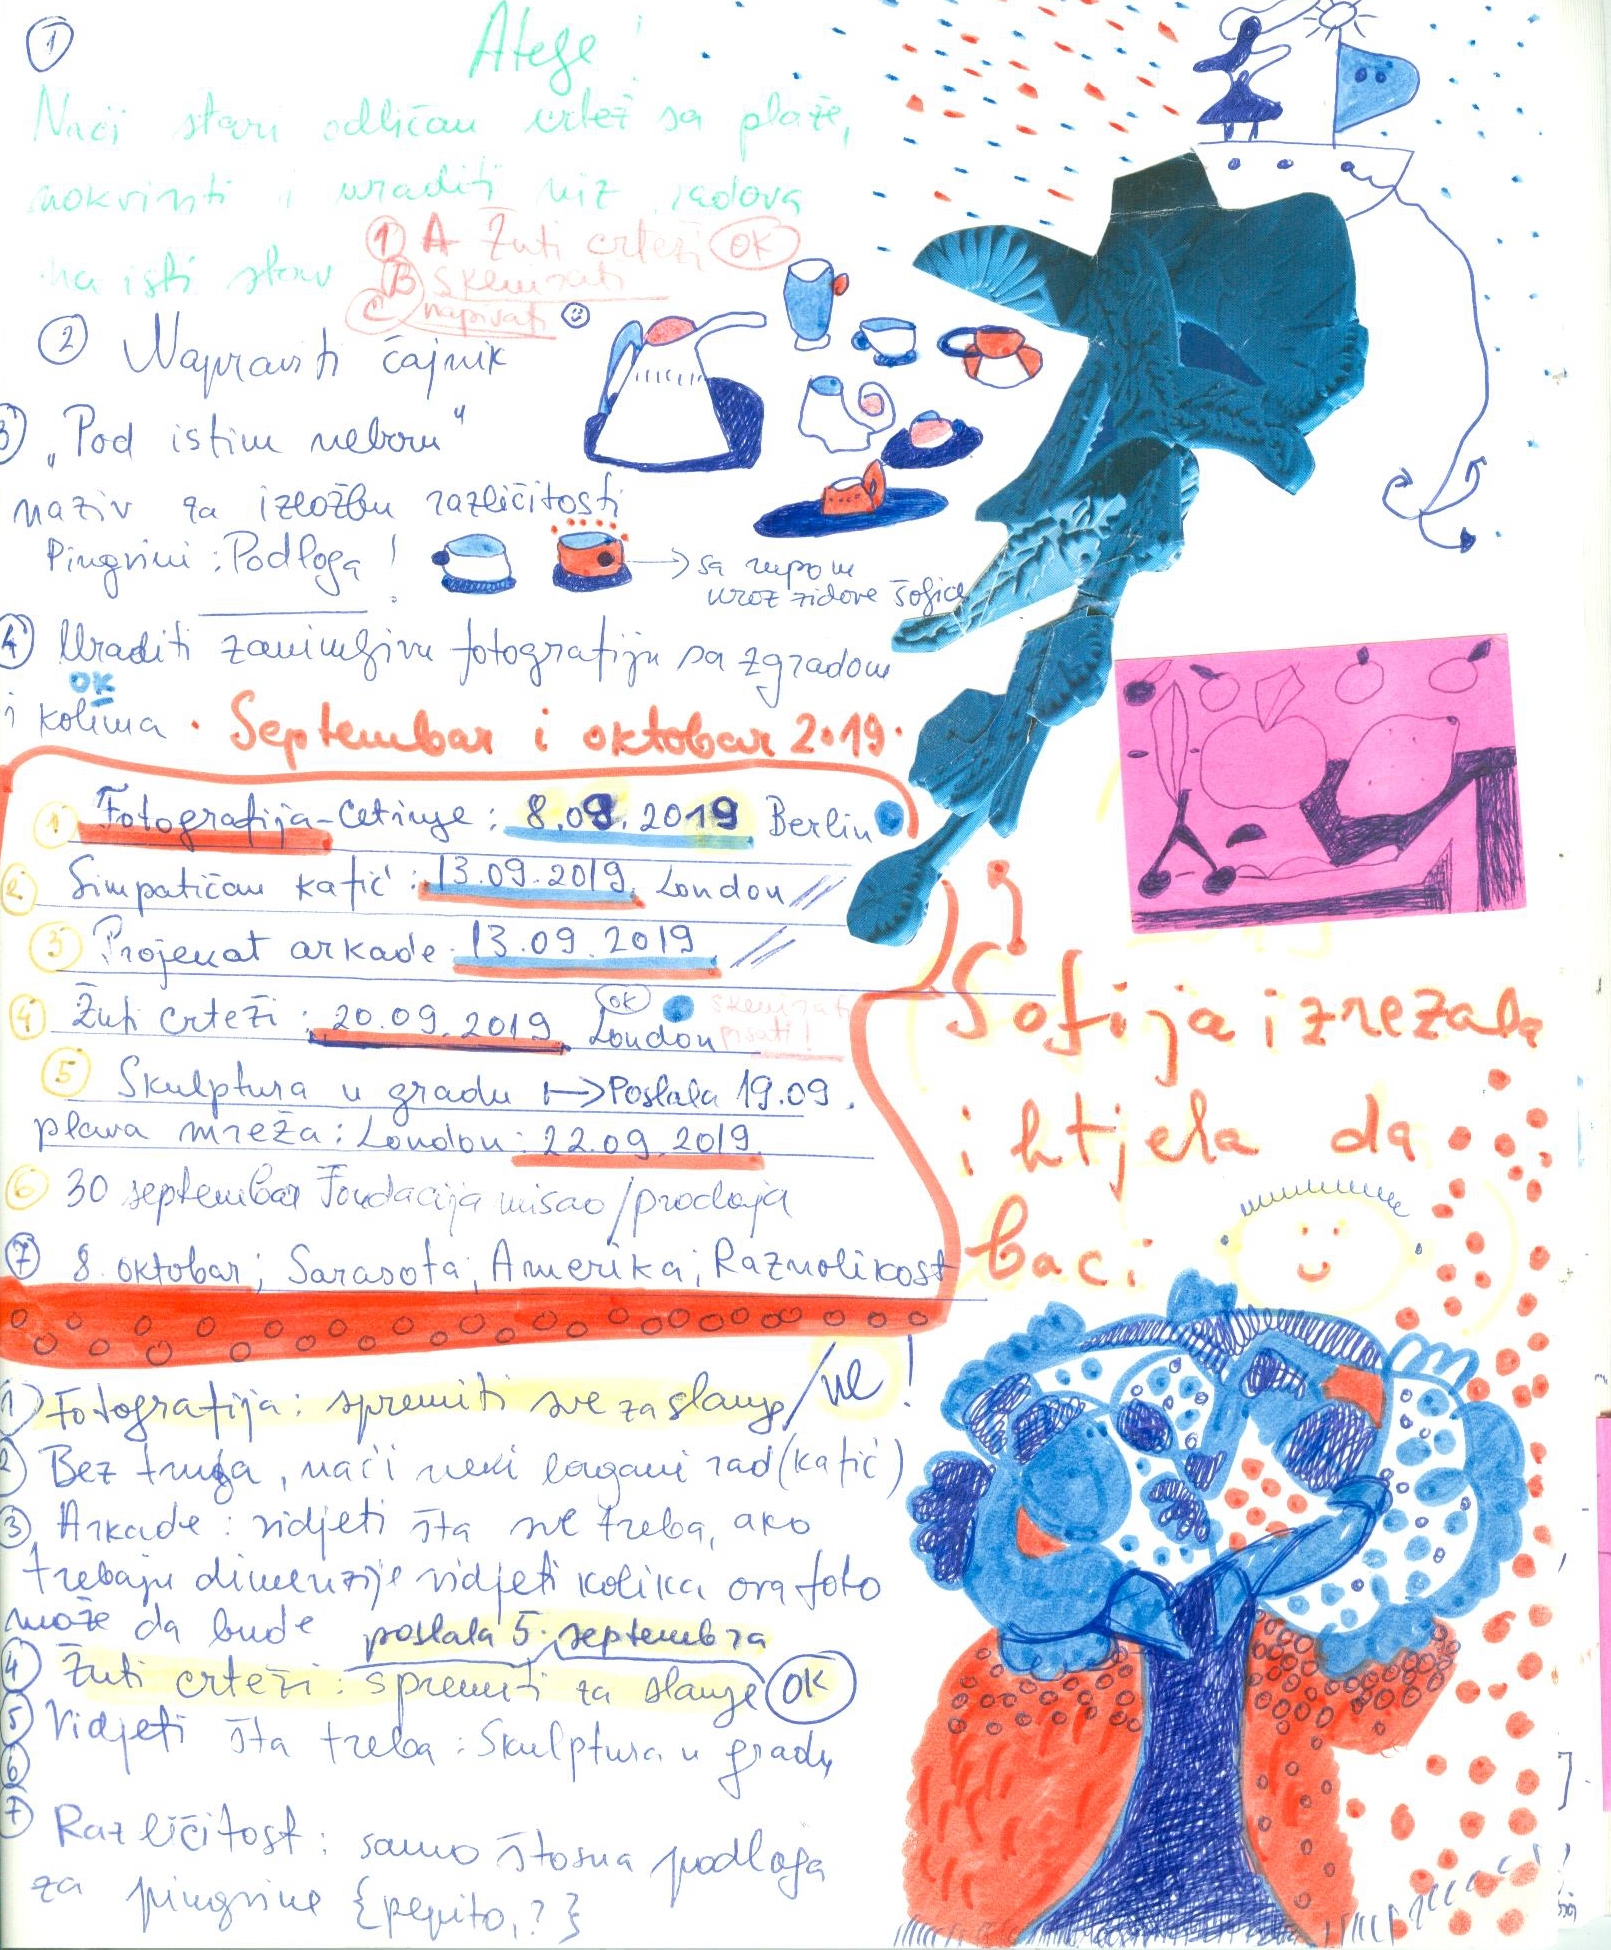 ①
Atelje!
Naći stari odličan crtež sa plaže,
uokviriti i uraditi niz radova
na isti
① A Žuti crteži OK
B skenirati
C napisati
② Napraviti čajnik
③ „Pod istim nebom"
naziv za izložbu različitosti
Pingvini: Podloga!
→ sa rupom
kroz zidove šoljice
④ Uraditi zanimljivu fotografiju sa zgradom
OK
i kolima
· Septembar i oktobar 2019.
① Fotografija-Cetinje: 8.09.2019 Berlin
② Simpatičan Katić: 13.09.2019. London //
③ Projekat arkade 13.09.2019 //
④ Žuti crteži: 20.09.2019 London OK
skenirati
pisati!
⑤ Skulptura u gradu → Poslala 19.09.
plava mreža: London: 22.09.2019.
⑥ 30 septembar Fondacija misao/prodaja
⑦ 8. oktobar; Sarasota; Amerika; Raznolikost
Sofija izrezala
i htjela da
baci.
① Fotografija: spremiti sve za slanje/ne!
② Bez truda, naći neki lagani rad (Katić)
③ Arkade: vidjeti šta sve treba, ako
trebaju dimenzije vidjeti kolika ova foto
može da bude
poslala 5. septembra
④ Žuti crteži: spremiti za slanje OK
⑤ Vidjeti šta treba: Skulptura u gradu
⑥
⑦ Različitost: samo štosna podloga
za pingvine {pepito,?}